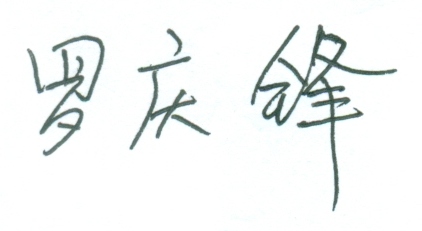 罗庆锋